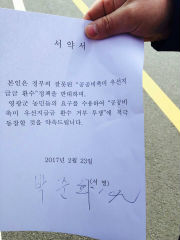 서 약 서
본인은 정부의 잘못된 "공공비축미 우선지
급금 환수" 정책을 반대하며,
영광군 농민들의 요구를 수용하여 "공공비
축미 우선지급금 환수 거부 투쟁"에 적극
동참할 것을 약속드립니다.
2017년 2월 23일
(서명)